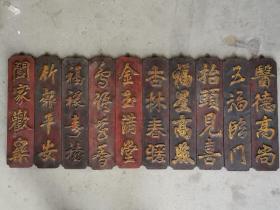 醫德高尚
五福臨門
抬頭見喜
福星高照
杏林春暖
金玉滿堂
鳥語花香
福祿壽禧
竹報平安
闔家歡樂